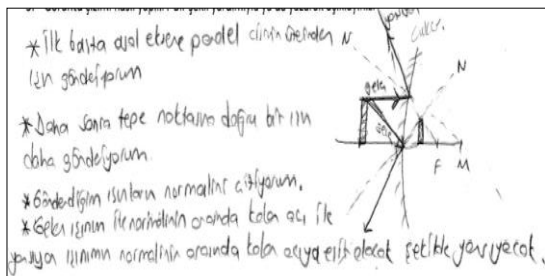 * İlk başta asal eksene paralel cismin üzerinden
ışın gönderiyorum
* Daha sonra tepe noktasına doğru bir ışın
daha gönderiyorum.
* Gönderdiğim ışınların normalini çiziyorum.
* Gelen ışının ile normalinin arasında kalan açı ile
yansıyan ışınımın normalinin arasında kalan açıya eşit olacak şekilde yansıyacak.
yansıyan
N
N
gelen
F
M